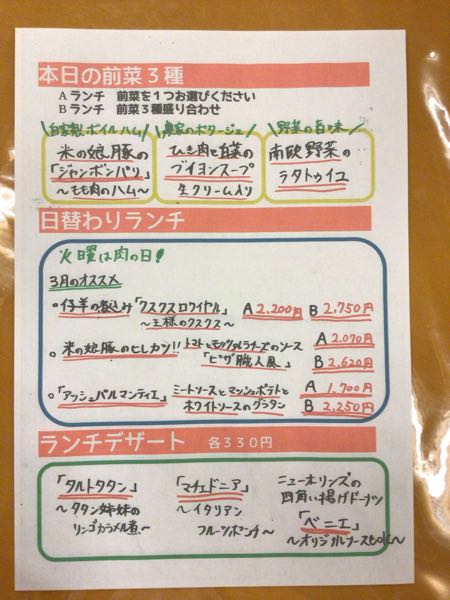 本日の前菜3種
Aランチ 前菜を1つお選びください
Bランチ 前菜3種盛り合わせ
\自家製ボイルハム/ \農家のポタージュ/ \野菜の旨味/
米の娘豚の
「ジャンボンパリ」
～もも肉のハム～
ひき肉と白菜の
ブイヨンスープ
生クリーム入り
南欧野菜の
ラタトゥイユ
日替わりランチ
火曜は肉の日!
3月のオススメ
○仔羊の煮込み「クスクスロワイヤル」 A 2,200円 B 2,750円
～王様のクスクス～
○米の娘豚のヒレカツ!! トマトとモッツァレラチーズのソース A 2,070円
「ピザ職人風」 B 2,620円
○「アッシュパルマンティエ」 ミートソースとマッシュポテトと A 1,700円
ホワイトソースのグラタン B 2,250円
ランチデザート 各330円
「タルトタタン」
～タタン姉妹の
リンゴカラメル煮～
「マチェドニア」
～イタリアン
フルーツポンチ～
ニューオリンズの
四角い揚げドーナツ
「ベニエ」
～オリジナルソースもok～